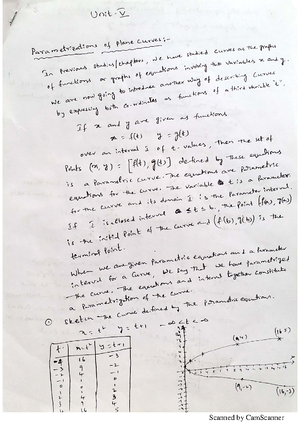 Unit-V
Parametrizations of Plane Curves:-
In previous studies/chapters, we have studied curves as the graphs
of functions or graphs of equations involving two variables x and y.
we are now going to introduce another way of describing curves
by expressing both co-ordinates as functions of a third variable 't'.
If x and y are given as functions
x = f(t) y = g(t)
over an interval I of t-values, then the set of
Points (x, y) = [f(t), g(t)] defined by these equations
is a Parametric curve. The equations are Parametric
equations for the curve. The variable t is a Parameter
for the curve and its domain I is the Parameter interval.
If I is closed interval a ≤ t ≤ b, the Point (f(a), g(a))
is the initial Point of the curve and (f(b), g(b)) is the
terminal Point.
When we are given Parametric equations and a Parameter
interval for a curve, we say that we have Parametrized
the curve. The equations and interval together constitute
a Parametrization of the curve.
Sketch the curve defined by the Parametric equations.
x = t² y = t+1 -∞ < t < ∞
t x = t² y = t+1
-4 16 -3
-3 9 -2
-2 4 -1
(9,4) (16,5)
(9,-2) (16,-3)
Scanned by CamScanner